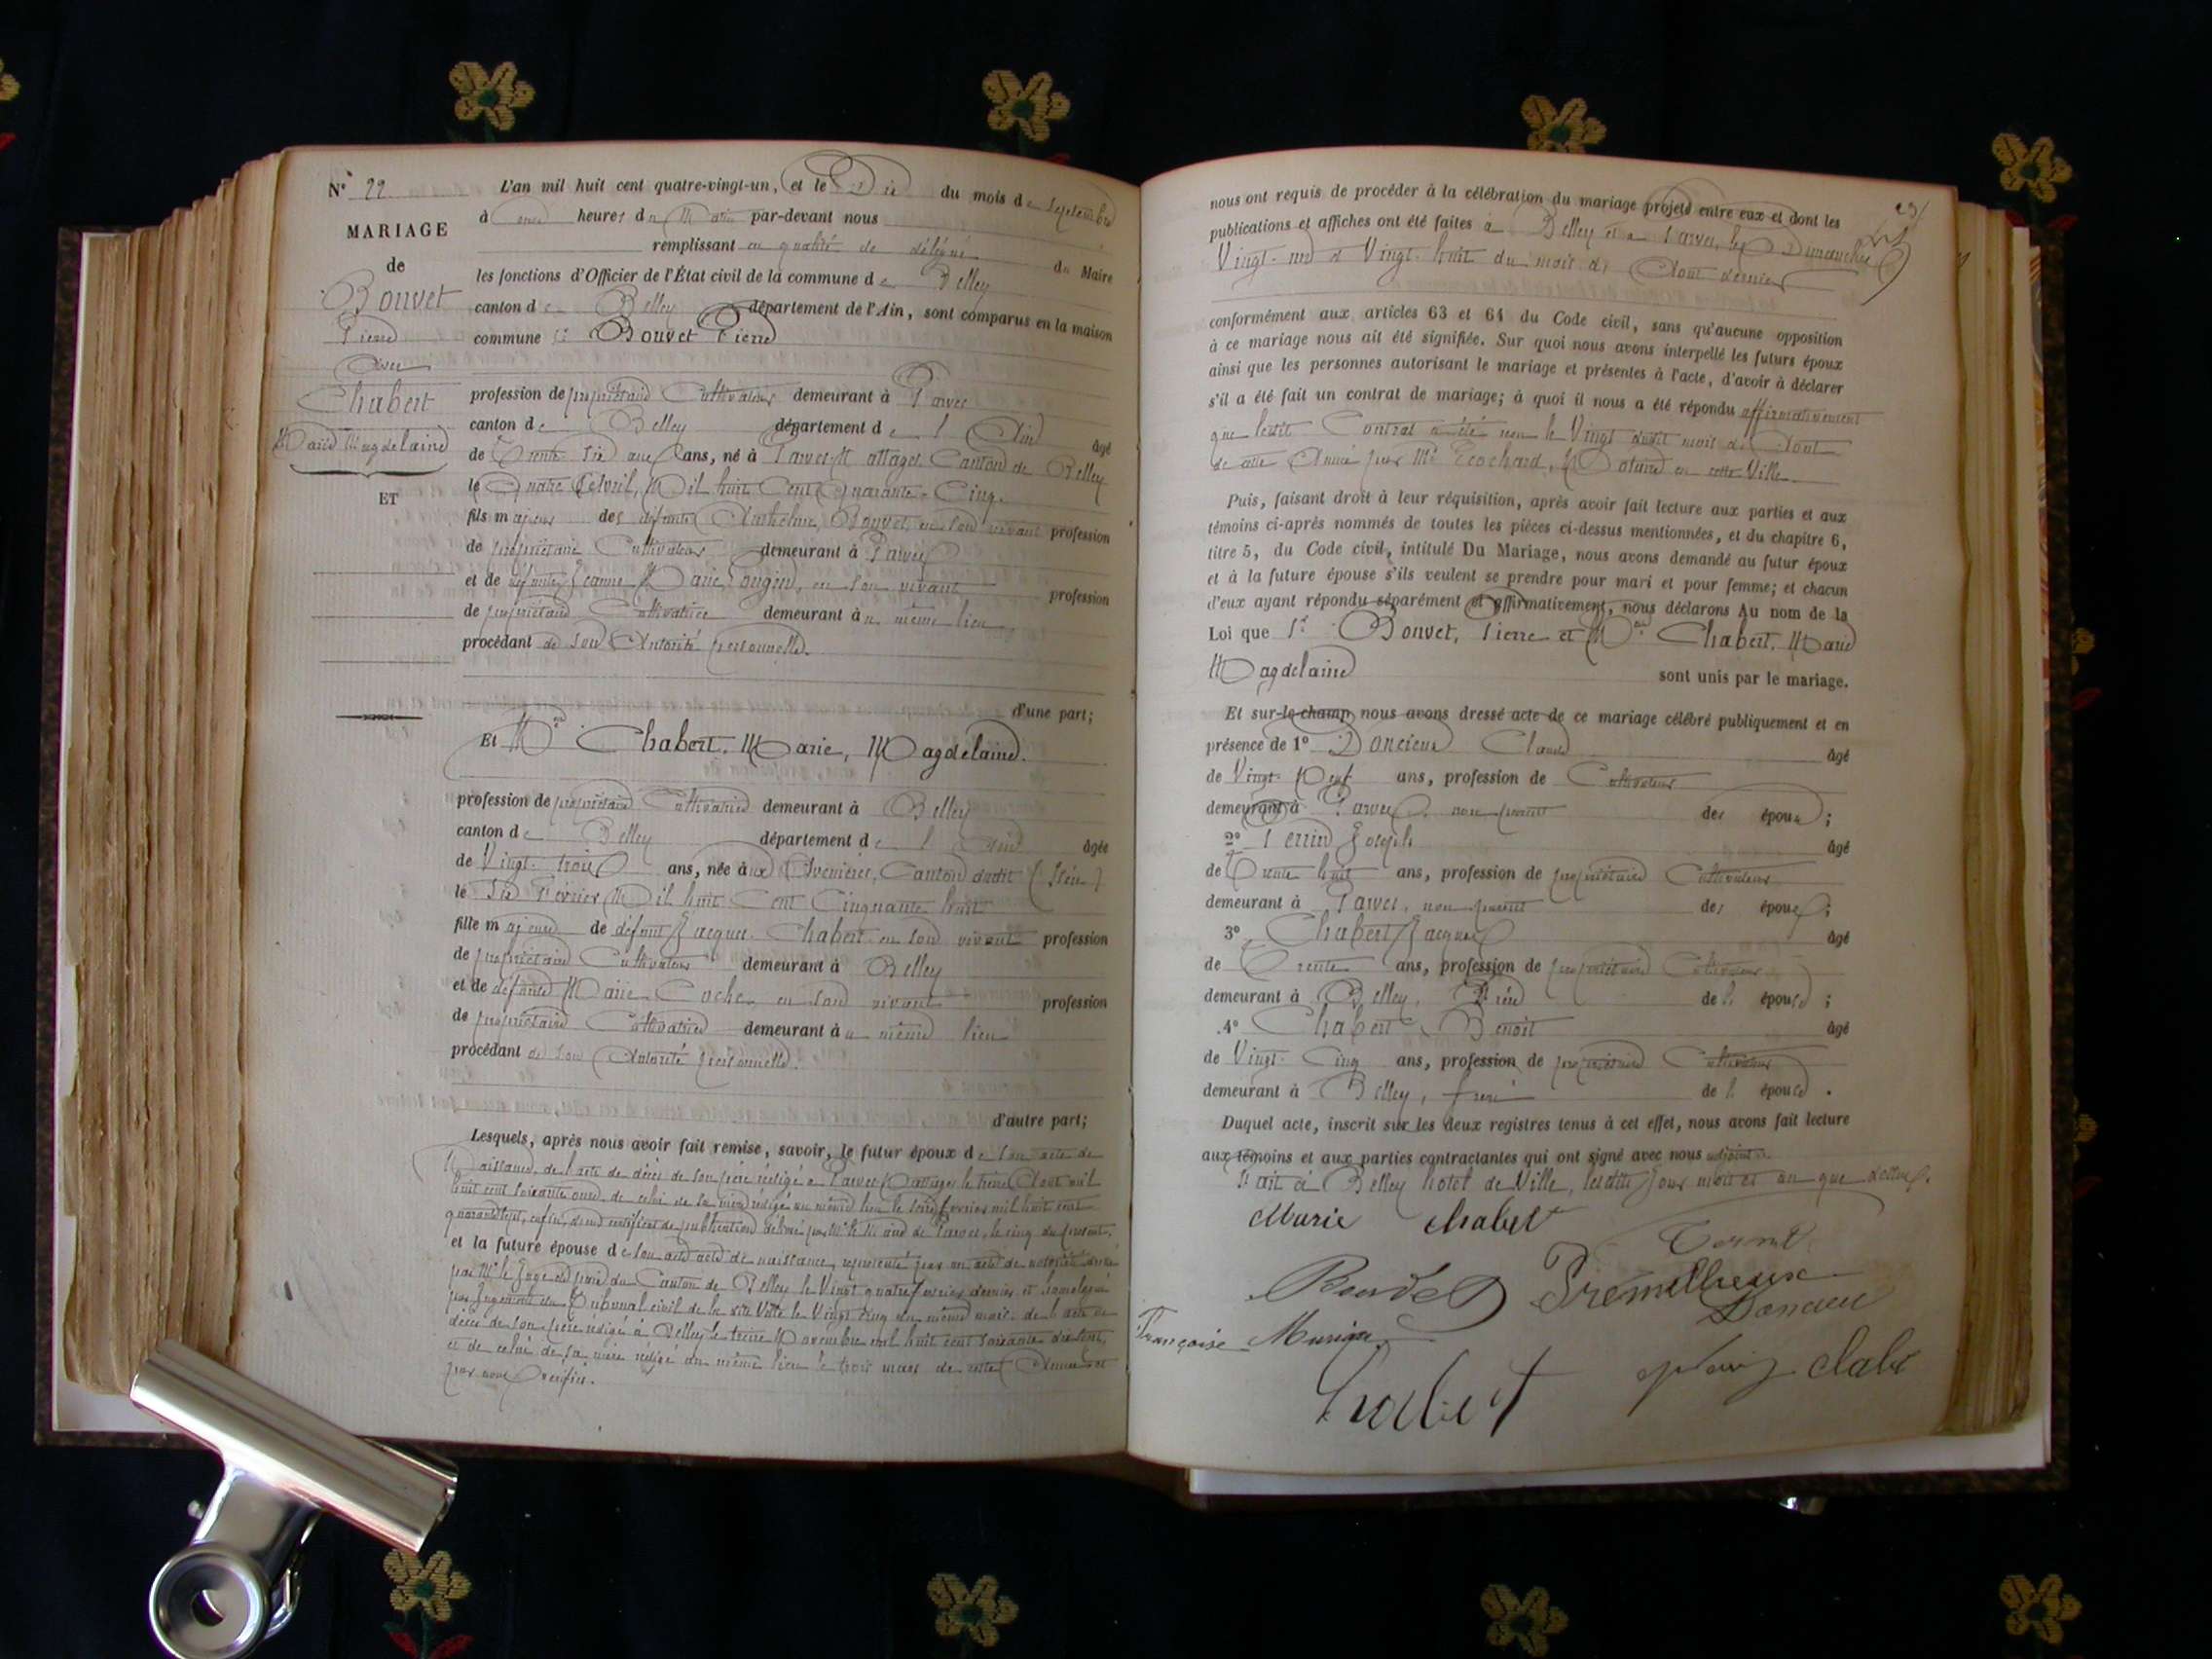 N° 22
MARIAGE
de
Bouvet
Pierre
avec
Chabert
Marie Magdelaine
ET
L'an mil huit cent quatre-vingt-un, et le Dix du mois de Septembre
à onze heures du Matin par-devant nous
remplissant en qualité de délégué du Maire
les fonctions d'Officier de l'État civil de la commune de Belley
canton de Belley département de l'Ain, sont comparus en la maison
commune Sr Bouvet Pierre
profession de propriétaire Cultivateur demeurant à Parves
canton de Belley département de l'Ain âgé
de Trente Six ans, né à Parves-Nattages Canton de Belley
le Quatre Avril, Mil huit Cent Quarante-Cinq.
fils majeur des défunts Anthelme Bouvet, en son vivant profession
de propriétaire Cultivateur demeurant à Parves
et de défunte Jeanne Marie en son vivant profession
de propriétaire Cultivatrice demeurant au même lieu
procédant de son Autorité personnelle.
d'une part;
Et Chabert, Marie, Magdelaine.
profession de propriétaire Cultivatrice demeurant à Belley
canton de Belley département de l'Ain âgée
de Vingt-trois ans, née aux Avenières, Canton dudit (Isère)
le Six Février Mil huit Cent Cinquante huit
fille majeure de défunt Jacques Chabert en son vivant profession
de propriétaire Cultivateur demeurant à Belley
et de défunte Marie Coche en son vivant profession
de propriétaire Cultivatrice demeurant au même lieu
procédant de son Autorité personnelle.
d'autre part;
Lesquels, après nous avoir fait remise, savoir, le futur époux de son acte de
Naissance, de l'acte de décès de son père rédigé à Parves-Nattages le treize Août mil
huit cent soixante onze, de celui de sa mère rédigé au même lieu le seize février mil huit cent
quarante sept, enfin, d'un certificat de publication délivré par Mr le Maire de Parves, le cinq du présent.
et la future épouse de son acte de naissance, représenté par un acte de notoriété
par Mr le Juge de paix du Canton de Belley le Vingt quatre février dernier et homologué
par Jugement du Tribunal civil de la dite Ville le Vingt cinq du même mois, de l'acte de
décès de son père rédigé à Belley le treize Novembre mil huit cent soixante dix sept,
et de celui de sa mère rédigé au même lieu le trois mars de cette Année et
par nous vérifiés.
nous ont requis de procéder à la célébration du mariage projeté entre eux et dont les
publications et affiches ont été faites à Belley et à Parves, les Dimanches
Vingt-un et Vingt-huit du mois de Août dernier
conformément aux articles 63 et 64 du Code civil, sans qu'aucune opposition
à ce mariage nous ait été signifiée. Sur quoi nous avons interpellé les futurs époux
ainsi que les personnes autorisant le mariage et présentes à l'acte, d'avoir à déclarer
s'il a été fait un contrat de mariage; à quoi il nous a été répondu affirmativement
que ledit Contrat a été reçu le Vingt dudit mois de Août
de cette Année par Me Ecochard, Notaire en cette Ville.
Puis, faisant droit à leur réquisition, après avoir fait lecture aux parties et aux
témoins ci-après nommés de toutes les pièces ci-dessus mentionnées, et du chapitre 6,
titre 5, du Code civil, intitulé Du Mariage, nous avons demandé au futur époux
et à la future épouse s'ils veulent se prendre pour mari et pour femme; et chacun
d'eux ayant répondu séparément et affirmativement, nous déclarons Au nom de la
Loi que Sr Bouvet, Pierre et Chabert, Marie
Magdelaine sont unis par le mariage.
Et sur-le-champ nous avons dressé acte de ce mariage célébré publiquement et en
présence de 1° Doncieux Claude âgé
de Vingt-Neuf ans, profession de Cultivateur
demeurant à Parves, non parent des époux;
2° Perrin Joseph âgé
de Trente huit ans, profession de propriétaire Cultivateur
demeurant à Parves, non parent des époux;
3° Chabert Jacques âgé
de Trente ans, profession de propriétaire Cultivateur
demeurant à Belley, Frère de l'épouse;
4° Chabert Benoit âgé
de Vingt-Cinq ans, profession de propriétaire Cultivateur
demeurant à Belley, frère de l'épouse.
Duquel acte, inscrit sur les deux registres tenus à cet effet, nous avons fait lecture
aux témoins et aux parties contractantes qui ont signé avec nous adjoint.
Fait à Belley hotel de Ville, lesdits Jour mois et an que dessus.
Marie chabert
Doncieu
Françoise